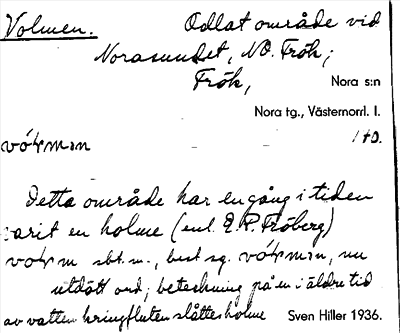 Volmen. Odlat område vid
Norasundet, NO. Frök;
Frök, Nora s:n
Nora tg., Västernorrl. l.
1 HD.
vóɫmən
Detta område har en gång i tiden
varit en holme (enl. E. P. Fröberg)
voɫm sbt. m., best. sg. vóɫmən, nu
utdött ord; beteckning på en i äldre tid
av vatten kringfluten slåtterholme Sven Hiller 1936.